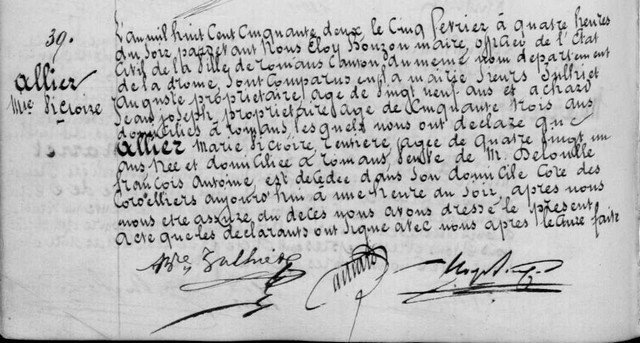 39.
allier
Mie Victoire
L'an mil huit Cent Cinquante deux, le Cinq février à quatre heures
du Soir, pardevant nous Eloy Bouzon maire, officier de l'Etat
Civil de la Ville de romans Canton du meme nom departement
de la drome, Sont Comparus en la mairie Sieurs
auguste proprietaire, age de vingt neuf ans et achard
Jean joseph, proprietaire, age de Cinquante trois ans
domiciliés à romans, lesquels nous ont declaré que
allier Marie Victoire, rentiere, agée de quatre vingt un
ans née et domiciliée a romans, veuve de M. Delolle
francois Antoine, est decedée dans Son domicile Cote des
Cordelliers aujourd'hui à une heure du Soir, apres nous
nous etre assuré du deces nous avons dressé le present
acte que les declarants ont signé avec nous apres lecture faite
achard